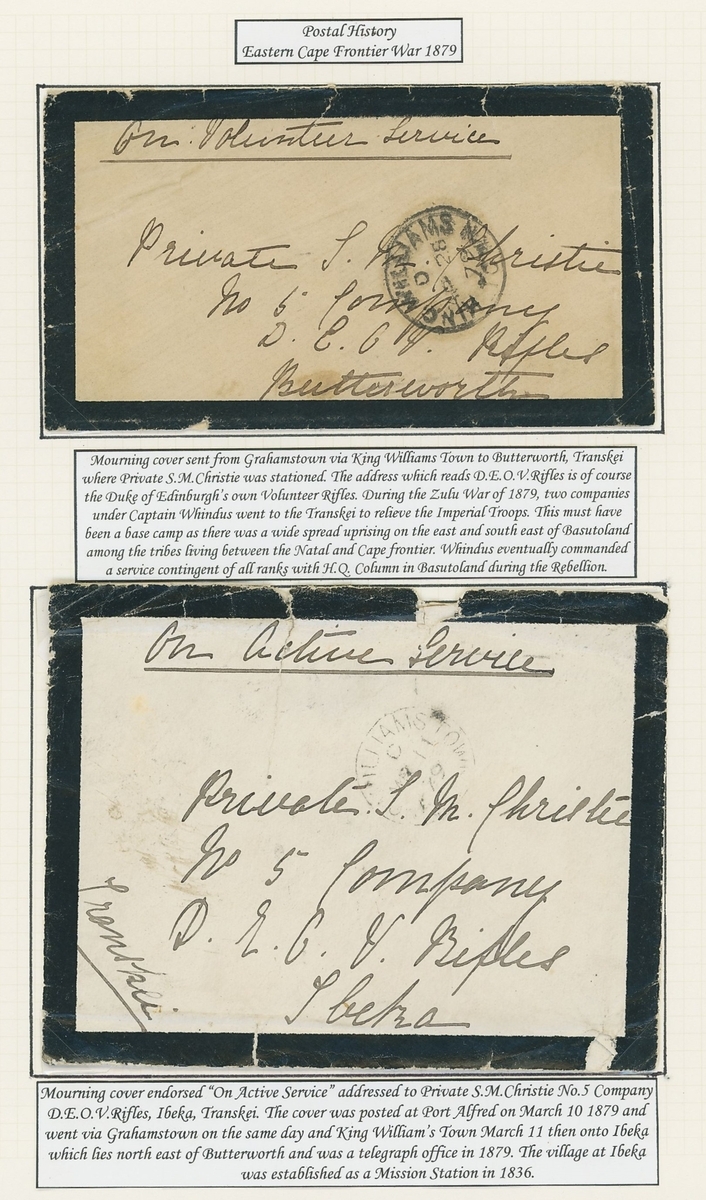 Postal History
Eastern Cape Frontier War 1879
On Volunteer Service
Private S. M. Christie
No 5 Company
D. E. O. V. Rifles
Butterworth
KING WILLIAMS TOWN
Mourning cover sent from Grahamstown via King Williams Town to Butterworth, Transkei
where Private S.M.Christie was stationed. The address which reads D.E.O.V.Rifles is of course
the Duke of Edinburgh's own Volunteer Rifles. During the Zulu War of 1879, two companies
under Captain Whindus went to the Transkei to relieve the Imperial Troops. This must have
been a base camp as there was a wide spread uprising on the east and south east of Basutoland
among the tribes living between the Natal and Cape frontier. Whindus eventually commanded
a service contingent of all ranks with H.Q. Column in Basutoland during the Rebellion.
On Active Service
WILLIAMS TOWN
Private S. M. Christie
No 5 Company
D. E. O. V. Rifles
Ibeka
Transkei
Mourning cover endorsed "On Active Service" addressed to Private S.M.Christie No.5 Company
D.E.O.V.Rifles, Ibeka, Transkei. The cover was posted at Port Alfred on March 10 1879 and
went via Grahamstown on the same day and King William's Town March 11 then onto Ibeka
which lies north east of Butterworth and was a telegraph office in 1879. The village at Ibeka
was established as a Mission Station in 1836.